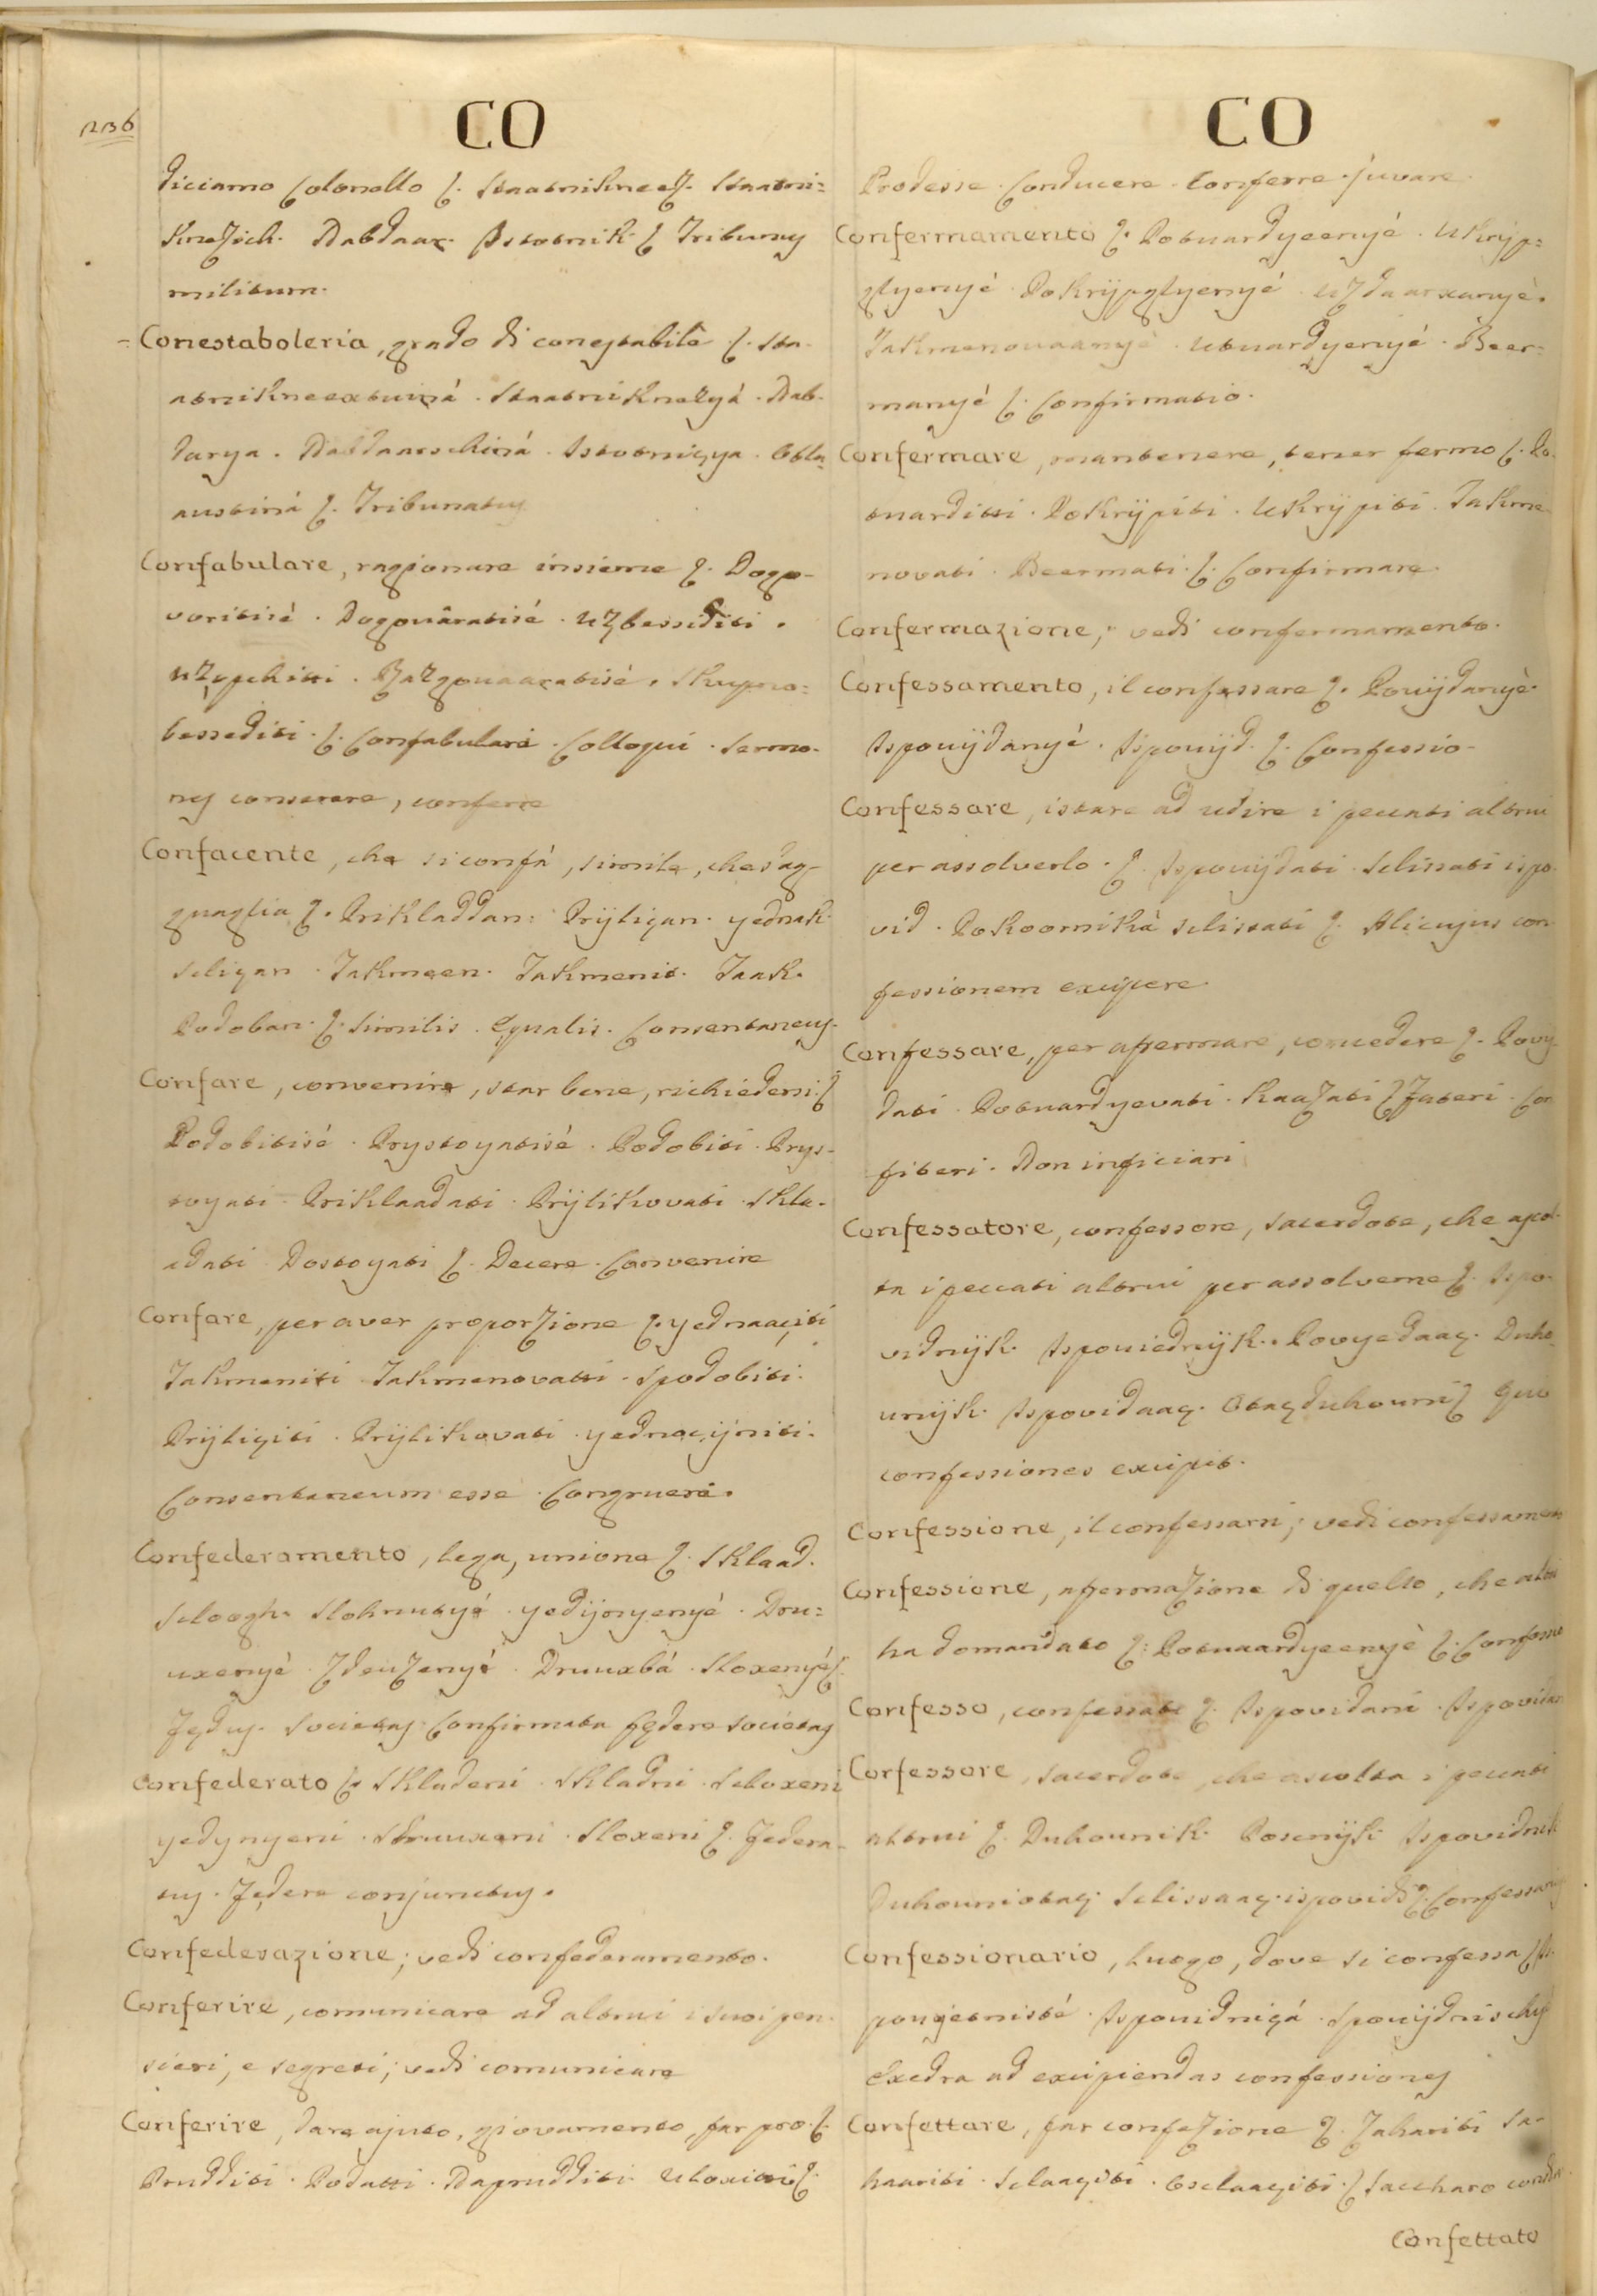 1236
CO
diciamo Colonello ʃ. Staatnikneeʒ. Staatni=
kneʒich. Nabdaar. Istotnik ʃ Tribunus
militum.
Conestaboleria, grado di conestabile ʃ. Sta-
atnikneextwiná. Staatniknezyá. Nab-
darya. Nabdaarschiná. Istotniçya. Obla-
austiná ʃ. Tribunatus
Confabulare, ragionare insieme ʃ. Dogo-
voritisé. Dogovâratisé. Uzbessiditi.
Razgovaaratisé. Skupno=
besseditti. ʃ. Confabulari. Colloqui. Sermo-
nes conserere, conferre
Confacente, che si confá, simile, che s'ag-
guaglia ʃ. Prikladdan. Prÿliçan. yednak
scliçan. Takmeen. Takmenit. Taak.
Podoban. ʃ. Similis. Equalis. Consentaneus.
Confare, convenire, star bene, richiedersi. ʃ
Podobitisé. Prystoyatisé. Podobiti. Prys-
toyati. Priklaadati. Prÿlikovati. Skla-
adati. Dostoyati ʃ. Decere. Convenire
Confare, per aver proporʒione ʃ. yednaaçiti
Takmeniti. Takmenovatti. Spodobiti.
Prÿliçiti. Prÿlikovati. yednaçÿniti.
Consentaneum esse. Congruere.
Confederamento, lega, unione ʃ. Sklaad.
Scloogh. Slohnutyé. yedÿnyenyé. Dru=
uxenyé. Zdruzenyé. Druuxbá. Sloxenyé ʃ.
Fędus. Societas. Confirmata fędere societas
Confederato ʃ. Skladeni. Skladni. Scloxeni
yedynyeni. Sdruuxeni. Sloxeni ʃ. Federa-
tus. Fędere conjunctus.
Confederazione; vedi confederamento.
Conferire, comunicare ad altrui i suoi pen-
sieri, e segreti; vedi comunicare
Conferire, dare ajuto, giovamento, far pro. ʃ.
Prudditi. Podatti. Napruditti. Uloxitti ʃ.
CO
Prodesse. Conducere. Conferre. Juvare.
Confermamento ʃ. Potvardyeenyé. Ukrÿp=
glyenyé. Pokrÿpglyenyé. Uzdaarxanyé.
Takmenovaanyé. Utvardyenyé. Beer=
manyé ʃ. Confirmatio.
Confermare, mantenere, tener fermo ʃ. Po-
tvarditti. Pokrÿpiti. Ukrÿpiti. Takme-
novati. Beermati. ʃ. Confirmare.
Confermazione; vedi confermamento.
Confessamento, il confessare ʃ. Povÿdanyé.
Ispovÿdanyé. Ispovÿd. ʃ. Confessio-
Confessare, istare ad udire i peccati altrui
per assolverlo. ʃ. Ispovÿdati. Sclissati ispo-
vid. Pokoorniká sclissati ʃ. Alicujus con-
fessionem excipere.
Confessare, per affermare, concedere ʃ. Povy-
dati. Potvardyevati. Kaaʒati ʃ Fateri. Con-
fiteri. Non inficiari
Confessatore, confessore, sacerdote, che ascol-
ta i peccati altrui per assolverne ʃ. Ispo-
vidnÿk. Ispoviednÿk. Povyedaaç. Duho-
vnÿk. Ispovidaaç. Otaçduhovni ʃ Qui
confessiones excipit.
Confessione, il confessarsi; vedi confessamento
Confessione, affermaʒione di quello, che altri
ha domandato ʃ. Potvaardyeenyé ʃ. Confessio
Confesso, confessato ʃ. Ispovidani. Ispovidan
Confessore, sacerdote, che ascolta i peccati
altrui ʃ. Duhovnik. Ispovidnik
Duhovniotaç. Sclissaaç ispovidi ʃ. Confessarius
Confessionario, luogo, dove si confessa ʃ Is-
povjetnisté. Ispovidniçá. Spovÿdnischyé
Exedra ad excipiendas confessiones
Confettare, far confeʒione ʃ. Zahariti. Sa-
haariti. Sclaaçiti. Osclaaçiti. ʃ Saccharo condire.
Confettato